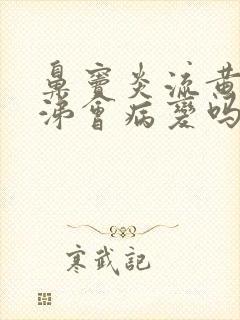 鼻窦炎流黄
涕会病變吗
寒武記